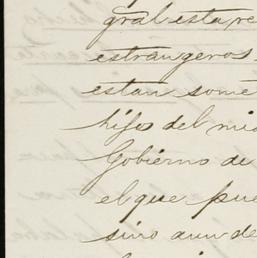 gral esta re
estrangeros
estan some
hijos del mis
Gobierno de
el que pue
sino aun de